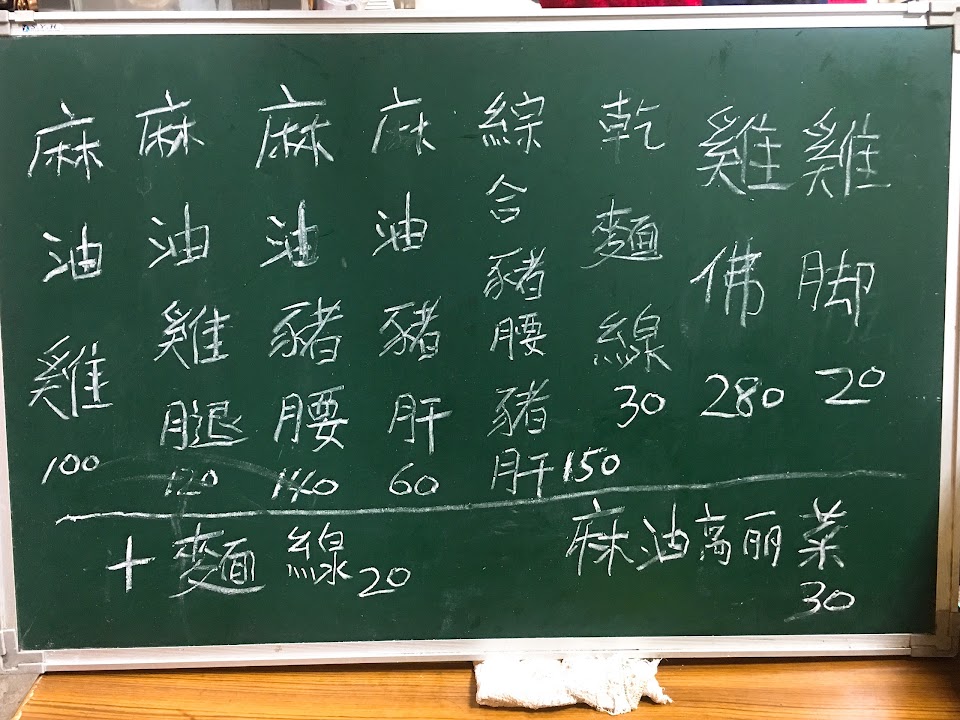 麻油雞100
麻油雞腿120
麻油豬腰140
麻油豬肝60
綜合豬腰豬肝150
乾麵線30
雞佛280
雞脚20
+麵線20
麻油高丽菜30